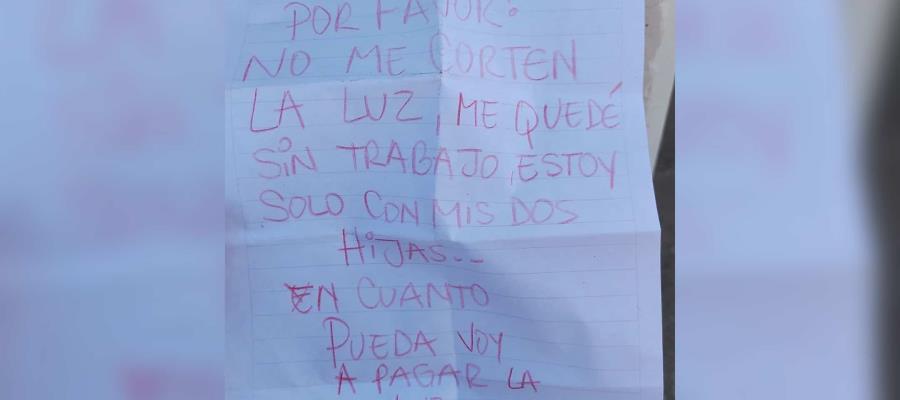 POR FAVOR:
NO ME CORTEN
LA LUZ, ME QUEDÉ
SIN TRABAJO, ESTOY
SOLO CON MIS DOS
HIJAS...
EN CUANTO
PUEDA VOY
A PAGAR LA